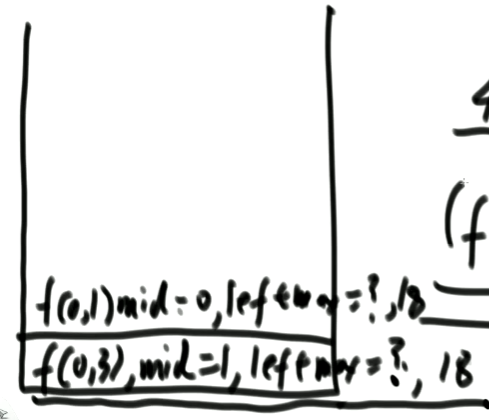 4
(f
f(0,1) mid=0, leftmax=?, 18
f(0,3), mid=1, leftmax=?, 18